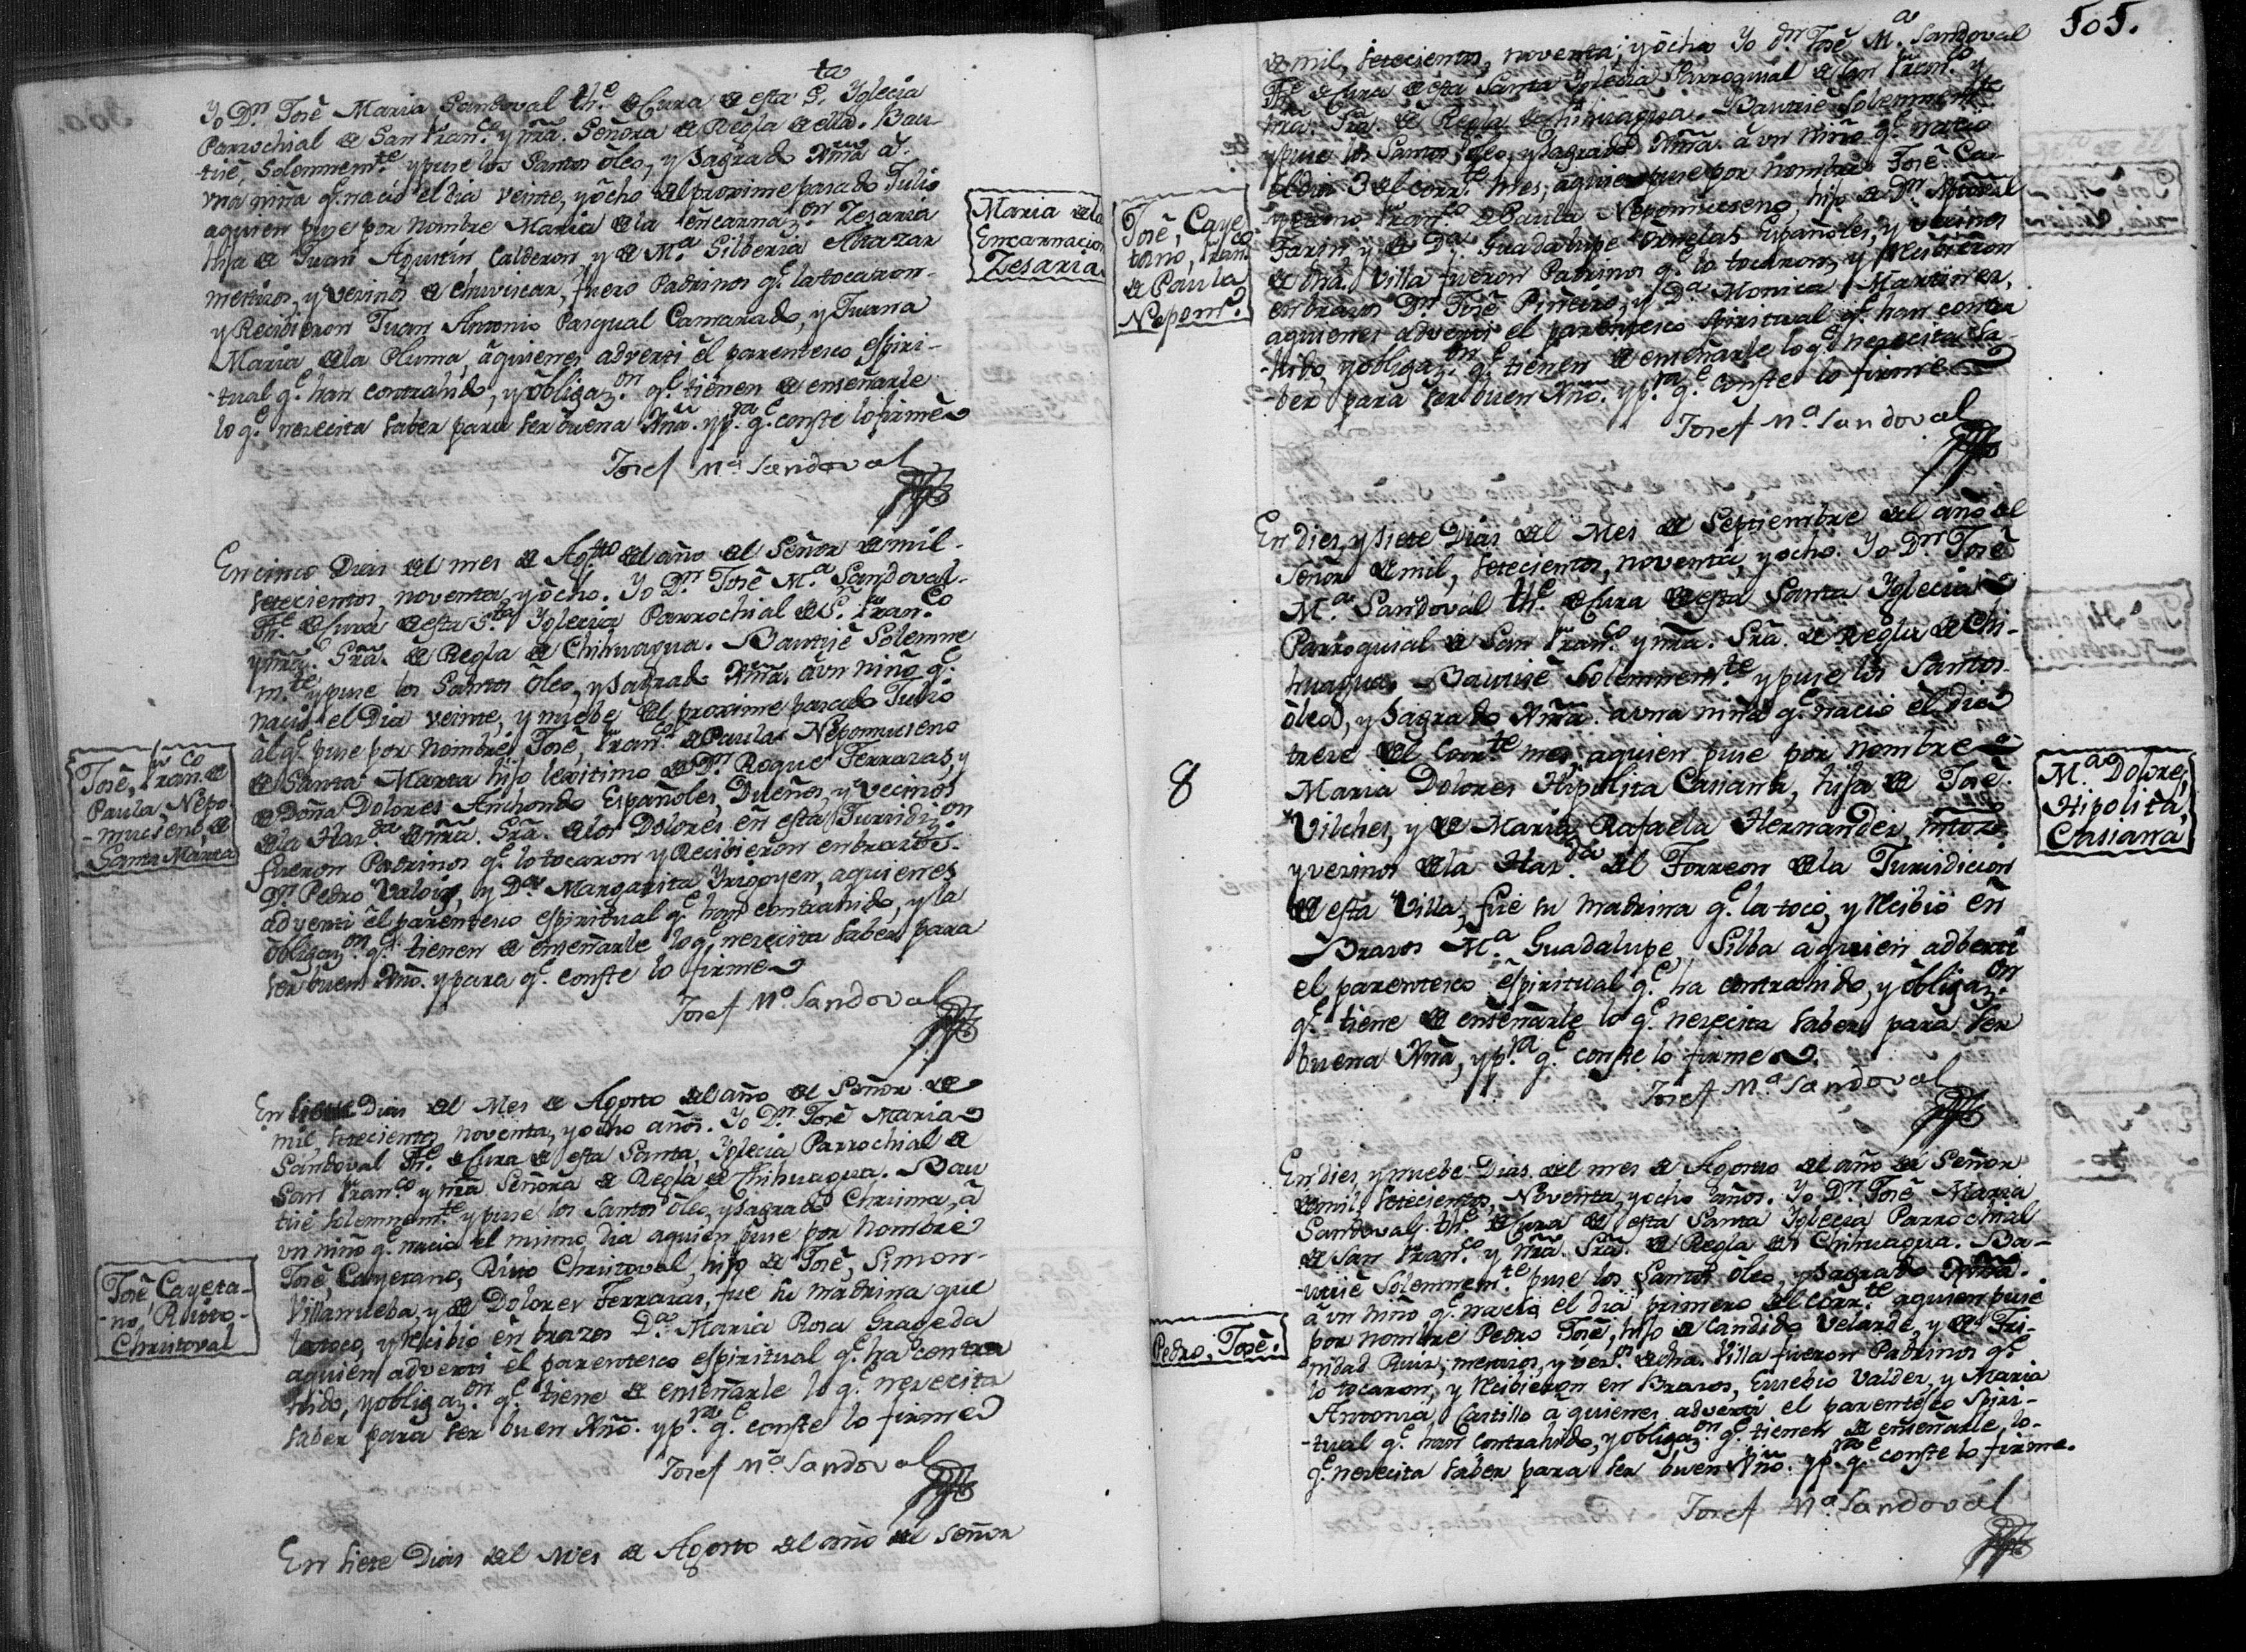 Yo Dn. José Maria Sandoval the. de Cura de esta Sta. Yglecia
Parrochial de San Franco. y nra. Señora de Regla de ella. Bau-
-tisé, Solemnemte. y puse los Santos oleo, y Sagrado Xma. á
vna niña qe. nacio el dia veinte, y ocho del proxime pasado Julio
aquien puse por nombre Maria de la encarnazon. Zesaria
hija de Juan Agustin Calderon y de Ma. Gilberia
mestizos, y vezinos de Chuviscar, fuero Padrinos qe. la tocaron
y Recibieron Juan Antonio Pasqual Camarado, y Juana
Maria de la Pluma, aquienes adverti el parentesco espiri-
-tual qe. han contrahido, y obligazon. qe. tienen de enseñarle
lo qe. nezecita saber para ser buena Xna. y pra. qe. conste lo firmé
Josef Ma. Sandoval
Maria de la
Encarnacion
Zesaria.
En cinco Dias del mes de Agtto. del año del Señor de mil
setecientos, noventa, y ocho. Yo Dn. José Ma. Sandoval
The. de Cura de esta Sta. Yglecia Parrochial de Sn. Franco.
y nra. Sra. de Regla de Chihuagua. Bautisé Solemne
mte. y puse los Santos Oleo, y Sagrado Xma. á vn niño qe.
nació el Dia veinte, y nuebe del proxime pasado Julio
al qe. puse por nombre José, Franco. de Paula Nepomuseno
de Santa Marta hijo lexitimo de Dn. Roque Ferrazas, y
de Doña Dolores Anchondo Españoles, Dueños, y Vecinos
de la Hazda. de nra. Sra. de los Dolores en esta Juridizon.
fueron Padrinos qe. lo tocaron y Recibieron en brazos
Dn. Pedro Valois, y Da. Margarita Yrigoyen, aquienes
adverti el parentesco espiritual qe. han contrahido, y la
obligazon. qe. tienen de enseñarle lo qe. nezecita saber para
ser buen Xno. y para qe. conste lo firme
Josef Ma. Sandoval
José, Franco. de
Paula Nepo-
-museno, de
Santa Marta
En siete Dias del Mes de Agosto del año del Señor de
mil setecientos noventa, y ocho años. Yo Dn. José Maria
Sandoval The. de Cura de esta Santa, Yglecia Parrochial de
San Franco. y nra. Señora de Regla de Chihuagua. Bau
tisé solemnemte. y puse los Santos óleo, y Sagrado Chrisma, á
vn niño qe. nacio el mismo dia aquien puse por nombre
José, Cayetano, Christoval, hijo de José, Simon
Villanueba, y de Dolores Ferrazas, fue su madrina que
lo toco, y Recibio en brazos Da. Maria Rosa Grageda
aquien adverti el parentesco espiritual qe. ha contra
hido, y obligazon. qe. tiene de enseñarle lo qe. nezecita
saber para ser buen Xno. y pra. qe. conste lo firme
Josef Ma. Sandoval
José Cayeta-
-no,
Christoval
En siete Dias del Mes de Agosto del año del Señor
505.
de mil, setecientos, noventa; y ocho Yo dn. José Ma. Sandoval
The. de Cura de esta Santa Yglecia Parroquial de San Franco. y
nra. Sra. de Regla de Chihuagua. Bautisé Solemnemte.
y puse los Santos oleo, y Sagrado Xma. á vn niño qe. nacio
el dia 3 del corrte. mes; aquien puse por nombre José Ca-
yetano Franco. de Paula Nepomuseno, hijo de Dn. Miguel
y de Da. Guadalupe Ornelas Españoles, y vecinos
de dha. Villa fueron Padrinos qe. lo tocaron, y Recibieron
en brazos Dn. José Pineiro, y Da. Monica Martinez,
aquienes adverti el parentesco spiritual qe. han contra
-hido, y obligazon. qe. tienen de enseñarle lo qe. nezecita sa-
-ber para ser buen Xno. y pra. qe. conste lo firme
Josef Ma. Sandoval
José, Caye
tano, Franco.
de Paula
Nepomo.
En dies, y siete Dias del Mes de Septiembre del año del
Señor de mil, setecientos, noventa, y ocho. Yo Dn. José
Ma. Sandoval the. de Cura de esta Santa Yglecia
Parroquial de San Franco. y nra. Sra. de Regla de Chi-
huagua. Bautisé Solemnemte. y puse los Santos
óleos, y Sagrado Xma. a vna niña qe. nacio el dia
treze del Corrte. mes, aquien puse por nombre
Maria Dolores Hipolita Casiana, hija de José
Vilches, y de Maria Rafaela Hernandez,
y vezinos de la Hazda. del Torreon de la Jurisdicion
de esta Villa, fue su madrina qe. la tocó, y Recibió en
Brazos Ma. Guadalupe, Silba aquien adberti
el parentesco espiritual qe. ha contrahido, y obligazon.
qe. tiene de enseñarle lo qe. nezecita saber para ser
buena Xna, y pra. qe. conste lo firme.
Josef Ma. Sandoval
8
Ma. Dolores,
Hipolita,
Casiana
En dies y nuebe Dias del mes de Agosto del año del Señor
de mil setecientos, Noventa, y ocho años. Yo Dn. José Maria
Sandoval the. de Cura de esta Santa Yglecia Parrochial
de San Franco. y nra. Sra. de Regla de Chihuagua. Ba-
-utisé Solemnemte. puse los Santos óleo, y Sagrado Xma.
á vn niño qe. nacio el dia primero del corrte. aquien puse
por nombre Pedro José, hijo de Candido Velarde, y de Tri-
nidad Ruiz, mestizos, y vezos. de dha. Villa fueron Padrinos qe.
lo tocaron, y Recibieron en Brazos, Eusebio Valdez, y Maria
Antonia Castillo aquienes adverti el parentesco Spiri-
-tual qe. han contrahido, y obligazon. qe. tienen de enseñarle, lo-
qe. nezecita saber para ser buen Xno. y pra. qe. conste lo firme.
Josef Ma. Sandoval
Pedro, José.